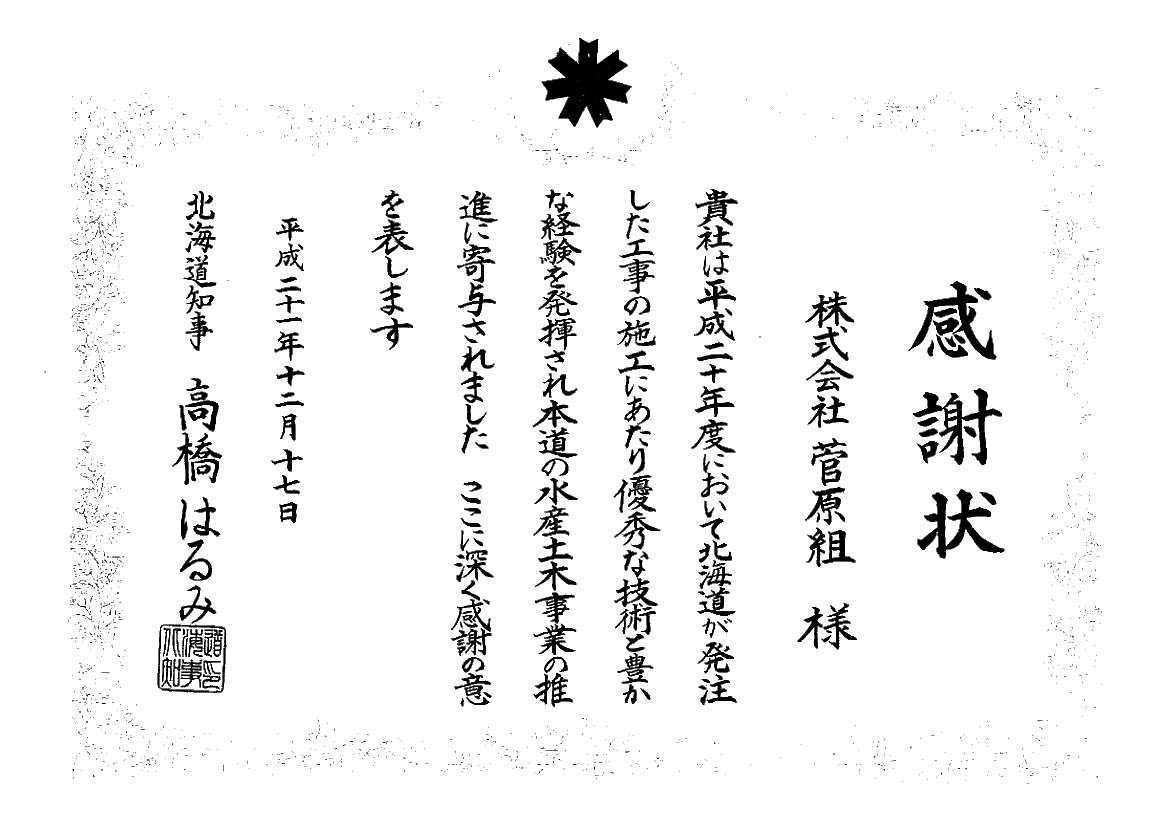 感謝状
株式会社 菅原組 様
貴社は平成二十年度において北海道が発注
した工事の施工にあたり優秀な技術と豊か
な経験を発揮され本道の水産土木事業の推
進に寄与されました ここに深く感謝の意
を表します
平成二十一年十二月十七日
北海道知事 高橋はるみ